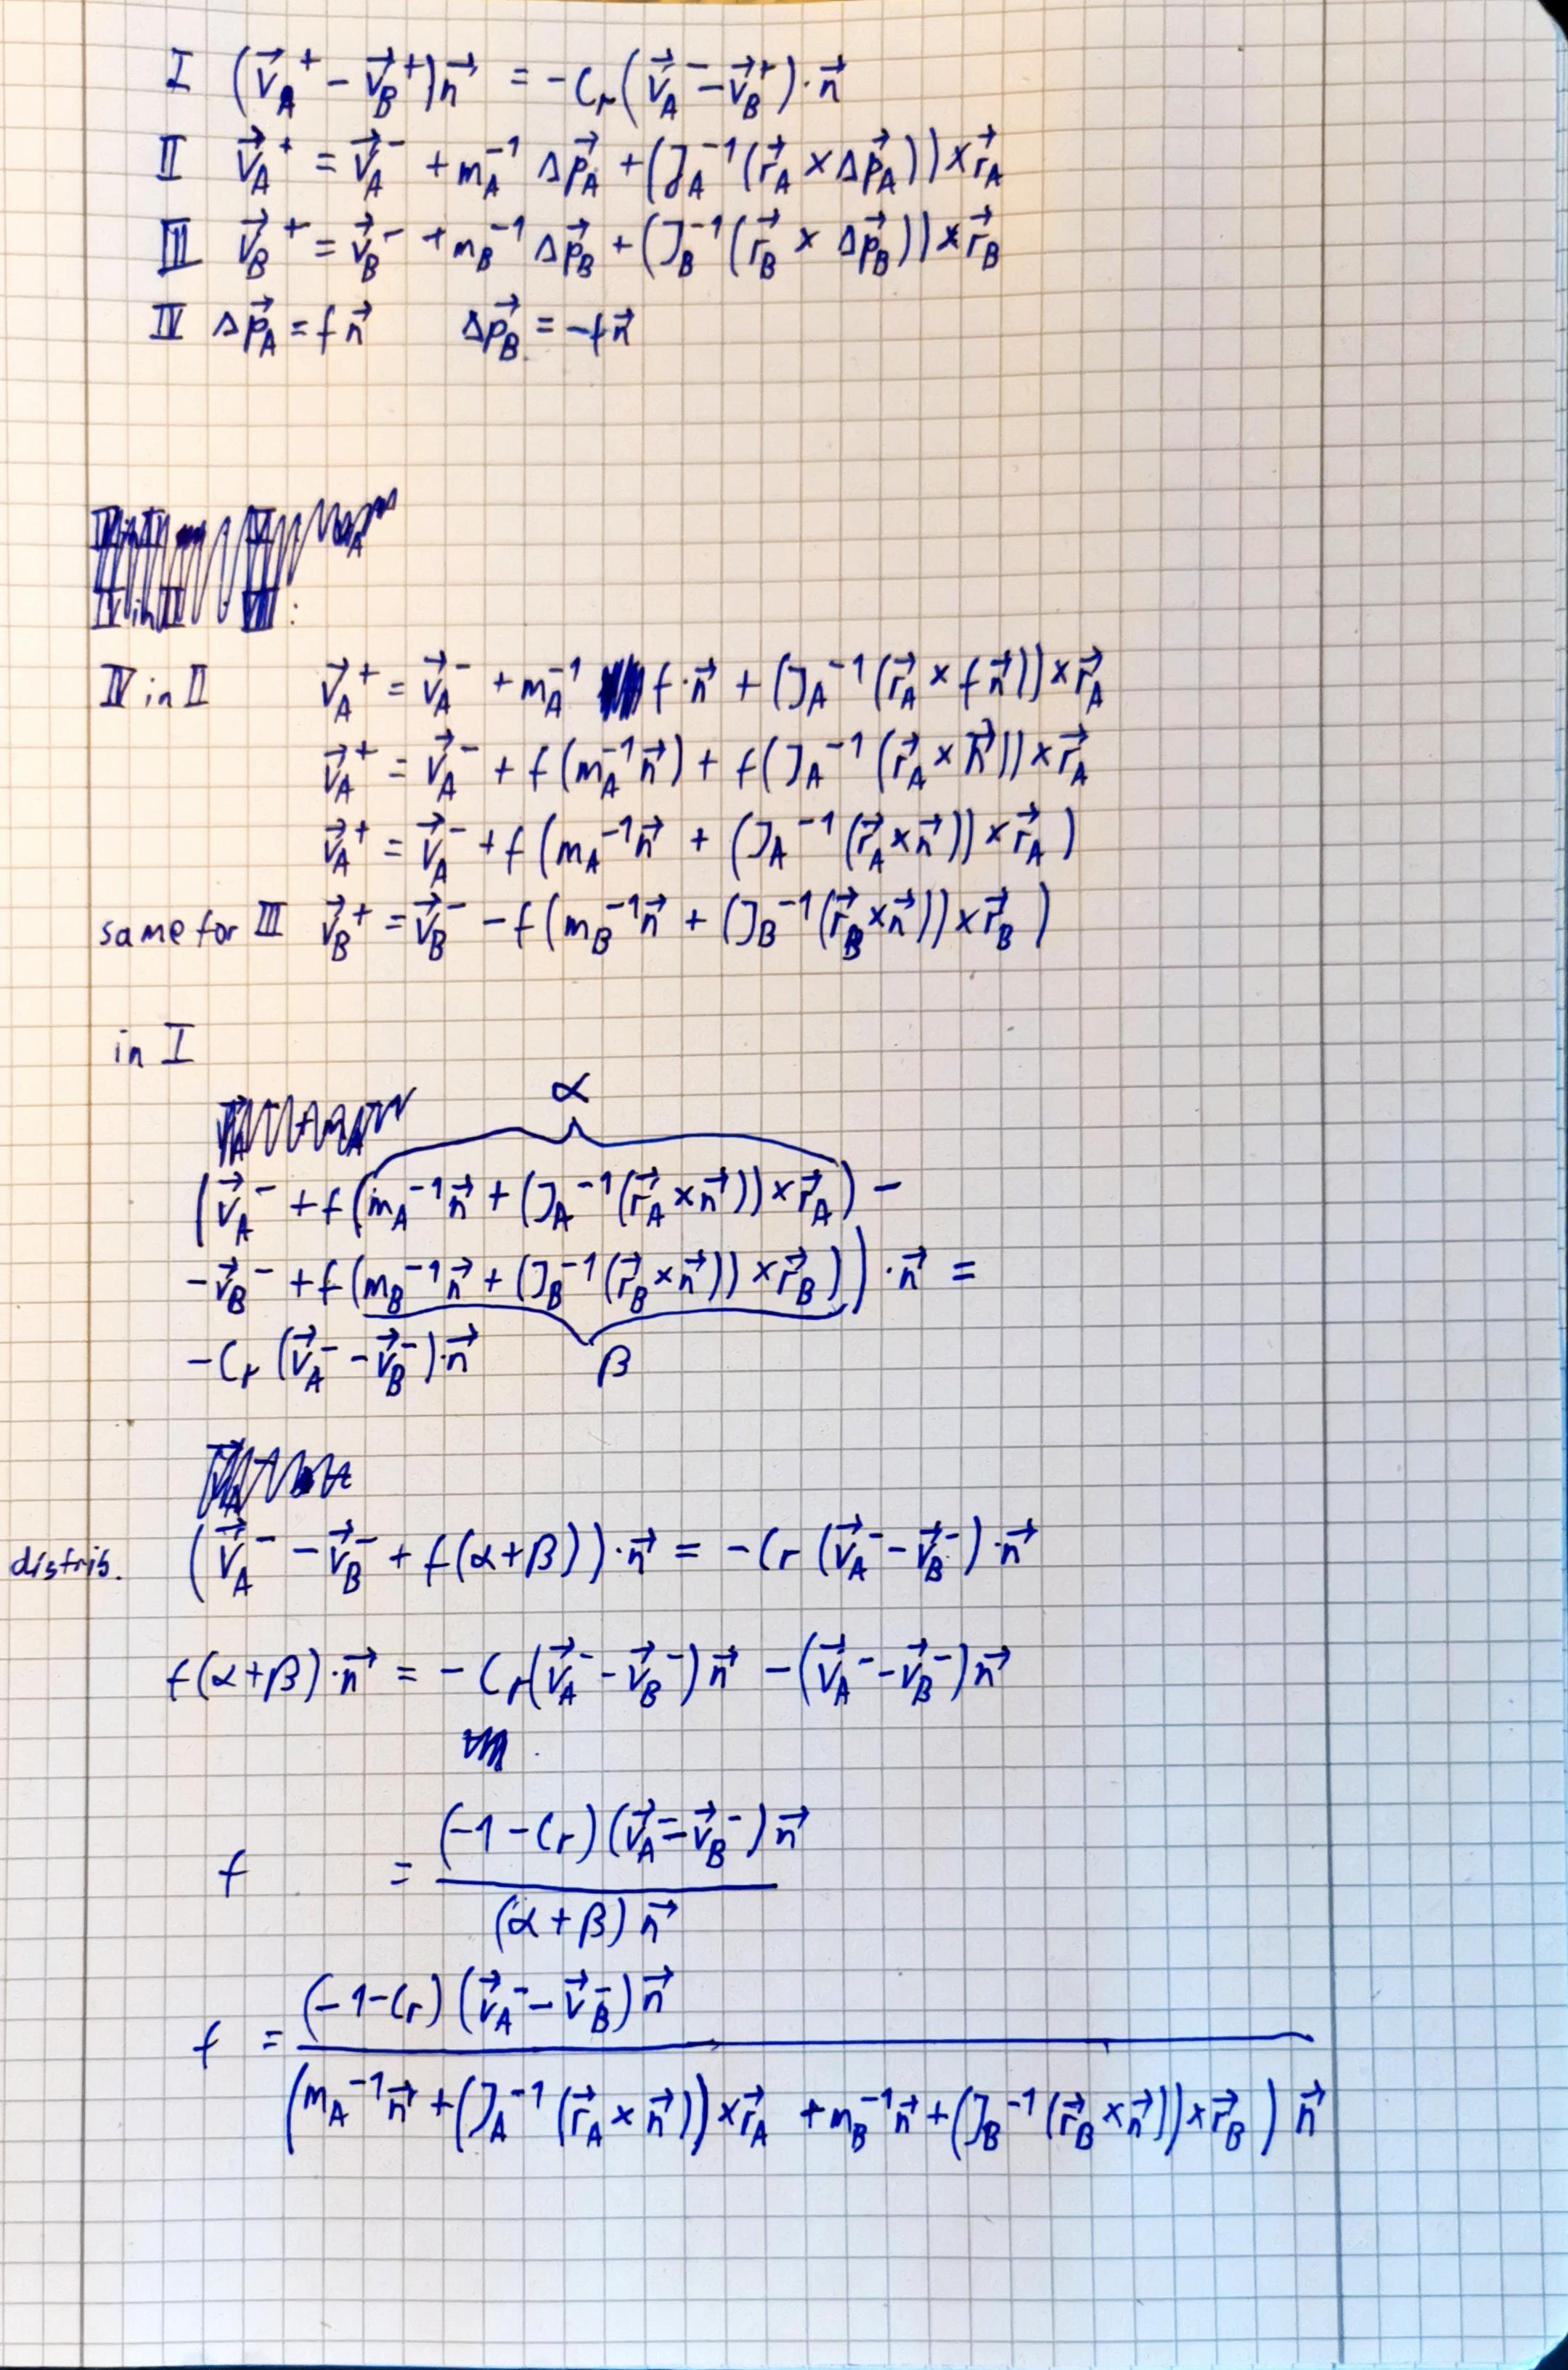 I (v⃗_A⁺ − v⃗_B⁺)n⃗ = −C_r(v⃗_A⁻ − v⃗_B⁺)·n⃗
II v⃗_A⁺ = v⃗_A⁻ + m_A⁻¹ Δp⃗_A + (J_A⁻¹(r⃗_A × Δp⃗_A)) × r⃗_A
III v⃗_B⁺ = v⃗_B⁻ + m_B⁻¹ Δp⃗_B + (J_B⁻¹(r⃗_B × Δp⃗_B)) × r⃗_B
IV Δp⃗_A = f n⃗ Δp⃗_B = −f n⃗
IV in II v⃗_A⁺ = v⃗_A⁻ + m_A⁻¹ f·n⃗ + (J_A⁻¹(r⃗_A × f n⃗)) × r⃗_A
v⃗_A⁺ = v⃗_A⁻ + f(m_A⁻¹n⃗) + f(J_A⁻¹(r⃗_A × n⃗)) × r⃗_A
v⃗_A⁺ = v⃗_A⁻ + f(m_A⁻¹n⃗ + (J_A⁻¹(r⃗_A × n⃗)) × r⃗_A)
same for III v⃗_B⁺ = v⃗_B⁻ − f(m_B⁻¹n⃗ + (J_B⁻¹(r⃗_B × n⃗)) × r⃗_B)
in I
α
(v⃗_A⁻ + f(m_A⁻¹n⃗ + (J_A⁻¹(r⃗_A × n⃗)) × r⃗_A) −
− v⃗_B⁻ + f(m_B⁻¹n⃗ + (J_B⁻¹(r⃗_B × n⃗)) × r⃗_B))·n⃗ =
−C_r(v⃗_A⁻ − v⃗_B⁻)·n⃗
β
distrib. (v⃗_A⁻ − v⃗_B⁻ + f(α+β))·n⃗ = −C_r(v⃗_A⁻ − v⃗_B⁻)·n⃗
f(α+β)·n⃗ = −C_r(v⃗_A⁻ − v⃗_B⁻)n⃗ − (v⃗_A⁻ − v⃗_B⁻)n⃗
(−1−C_r)(v⃗_A⁻ − v⃗_B⁻)n⃗
f =
(α+β)n⃗
(−1−C_r)(v⃗_A⁻ − v⃗_B⁻)n⃗
f =
(m_A⁻¹n⃗ + (J_A⁻¹(r⃗_A × n⃗)) × r⃗_A + m_B⁻¹n⃗ + (J_B⁻¹(r⃗_B × n⃗)) × r⃗_B) n⃗